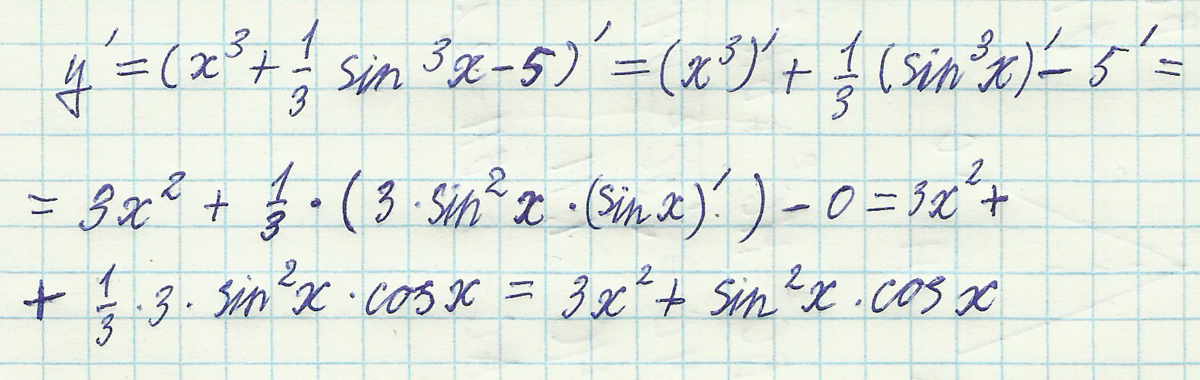 y' = (x³ + 1/3 sin ³x − 5)' = (x³)' + 1/3 (sin³x)' − 5' =
= 3x² + 1/3 · (3 · sin²x · (sin x)') − 0 = 3x² +
+ 1/3 · 3 · sin²x · cos x = 3x² + sin²x · cos x